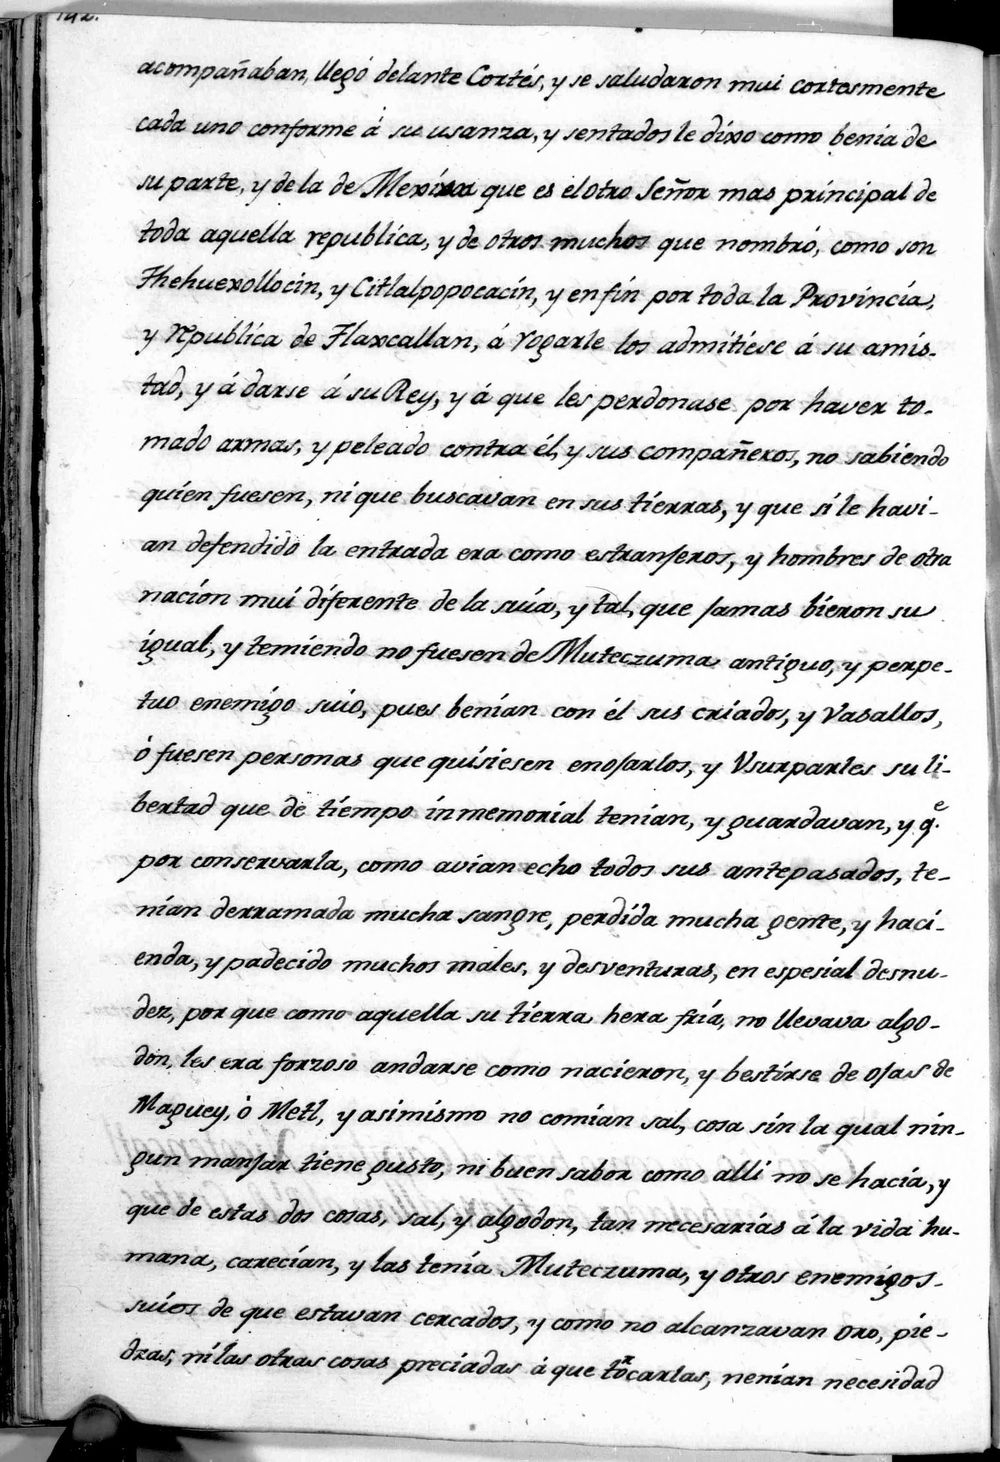 142.
acompañaban, llegó delante Cortés, y se saludaron mui cortesmente
cada uno conforme á su usanza, y sentados le dixo como benia de
su parte, y de la de Mexixca que es el otro Señor mas principal de
toda aquella republica, y de otros muchos que nombró, como son
Thehuexollocin, y Citlalpopocacin, y en fin por toda la Provincia,
y republica de Tlaxcallan, á rogarle los admitiese á su amis-
tad, y á darse á su Rey, y á que les perdonase por haver to-
mado armas, y peleado contra él, y sus compañeros, no sabiendo
quien fuesen, ni que buscavan en sus tierras, y que si le havi-
an defendido la entrada era como estranjeros, y hombres de otra
nacion mui diferente de la súa, y tal, que jamas bieron su
igual, y temiendo no fuesen de Muteczuma antiguo, y perpe-
tuo enemigo súio, pues benian con él sus criados, y Vasallos,
ó fuesen personas que quisiesen enojarlos, y Vsurparles su li-
bertad que de tiempo inmemorial tenian, y guardavan, y q.e
por conservarla, como avian echo todos sus antepasados, te-
nian derramada mucha sangre, perdida mucha gente, y haci-
enda, y padecido muchos males, y desventuras, en espesial desnu-
dez, por que como aquella su tierra hera fria, no llevava algo-
don, les era forzoso andarse como nacieron, y bestirse de ojas de
Maguey, ó Metl, y asimismo no comian sal, cosa sin la qual nin-
gun manjar tiene gusto, ni buen sabor como alli no se hacia, y
que de estas dos cosas, sal, y algodon, tan necesarias á la vida hu-
mana, carecian, y las tenia Muteczuma, y otros enemigos
súios de que estavan cercados, y como no alcanzavan oro, pie-
dras, ni las otras cosas preciadas á que torcarlas, nenian necesidad